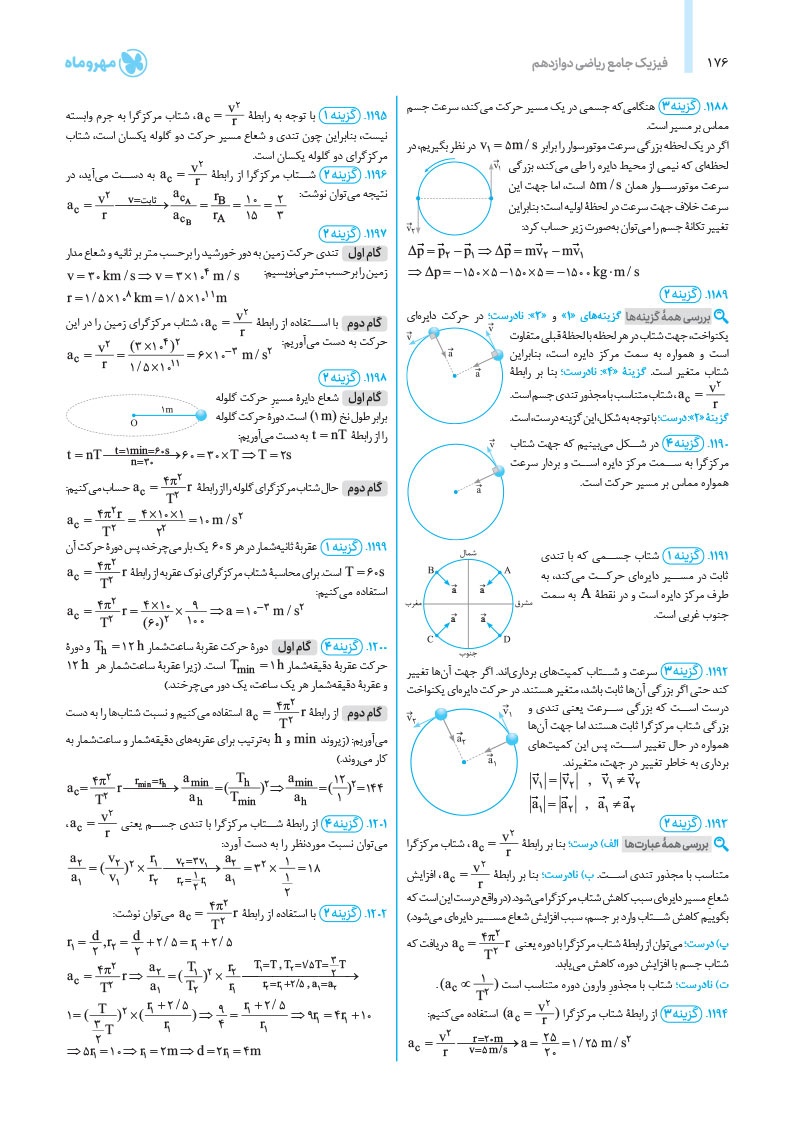 ۱۷۶
فیزیک جامع ریاضی دوازدهم
مهروماه
۱۱۸۸. گزینه ۳ هنگامی‌که جسمی در یک مسیر حرکت می‌کند، سرعت جسم
مماس بر مسیر است.
اگر در یک لحظه بزرگی سرعت موتورسوار را برابر v₁ = ۵m/s در نظر بگیریم، در
لحظه‌ای که نیمی از محیط دایره را طی می‌کند، بزرگی
سرعت موتورسوار همان ۵m/s است، اما جهت این
سرعت خلاف جهت سرعت در لحظهٔ اولیه است؛ بنابراین
تغییر تکانهٔ جسم را می‌توان به‌صورت زیر حساب کرد:
v⃗₁
v⃗₂
Δp⃗ = p⃗₂ − p⃗₁ ⇒ Δp⃗ = mv⃗₂ − mv⃗₁
⇒ Δp = −۱۵۰×۵ − ۱۵۰×۵ = −۱۵۰۰ kg·m/s
۱۱۸۹. گزینه ۲
بررسی همهٔ گزینه‌ها گزینه‌های «۱» و «۳»: نادرست؛ در حرکت دایره‌ای
یکنواخت، جهت شتاب در هر لحظه با لحظهٔ قبلی متفاوت
است و همواره به سمت مرکز دایره است، بنابراین
شتاب متغیر است. گزینهٔ «۴»: نادرست؛ بنا بر رابطهٔ
a_c = v²/r، شتاب متناسب با مجذور تندی جسم است.
گزینهٔ «۲»: درست؛ با توجه به شکل، این گزینه درست است.
v⃗ v⃗ a⃗ a⃗
۱۱۹۰. گزینه ۴ در شکل می‌بینیم که جهت شتاب
مرکزگرا به سمت مرکز دایره است و بردار سرعت
همواره مماس بر مسیر حرکت است.
v⃗ a⃗
۱۱۹۱. گزینه ۱ شتاب جسمی که با تندی
ثابت در مسیر دایره‌ای حرکت می‌کند، به
طرف مرکز دایره است و در نقطهٔ A به سمت
جنوب غربی است.
شمال
B A
a⃗ a⃗
مغرب مشرق
a⃗ a⃗
C D
جنوب
۱۱۹۲. گزینه ۳ سرعت و شتاب کمیت‌های برداری‌اند. اگر جهت آن‌ها تغییر
کند حتی اگر بزرگی آن‌ها ثابت باشد، متغیر هستند. در حرکت دایره‌ای یکنواخت
درست است که بزرگی سرعت یعنی تندی و
بزرگی شتاب مرکزگرا ثابت هستند اما جهت آن‌ها
همواره در حال تغییر است، پس این کمیت‌های
برداری به خاطر تغییر در جهت، متغیرند.
v⃗₂ v⃗₁ a⃗₂ a⃗₁
|v⃗₁| = |v⃗₂| , v⃗₁ ≠ v⃗₂
|a⃗₁| = |a⃗₂| , a⃗₁ ≠ a⃗₂
۱۱۹۳. گزینه ۲
بررسی همهٔ عبارت‌ها الف) درست؛ بنا بر رابطهٔ a_c = v²/r، شتاب مرکزگرا
متناسب با مجذور تندی است. ب) نادرست؛ بنا بر رابطهٔ a_c = v²/r، افزایش
شعاع مسیر دایره‌ای سبب کاهش شتاب مرکزگرا می‌شود. (در واقع درست این است که
بگوییم کاهش شتاب وارد بر جسم، سبب افزایش شعاع مسیر دایره‌ای می‌شود.)
پ) درست؛ می‌توان از رابطهٔ شتاب مرکزگرا با دوره یعنی a_c = ۴π²/T² r دریافت که
شتاب جسم با افزایش دوره، کاهش می‌یابد.
ت) نادرست؛ شتاب با مجذور وارون دوره متناسب است (a_c ∝ ۱/T²).
۱۱۹۴. گزینه ۳ از رابطهٔ شتاب مرکزگرا (a_c = v²/r) استفاده می‌کنیم:
a_c = v²/r —(r=۲۰m, v=۵m/s)→ a = ۲۵/۲۰ = ۱/۲۵ m/s²
۱۱۹۵. گزینه ۱ با توجه به رابطهٔ a_c = v²/r، شتاب مرکزگرا به جرم وابسته
نیست، بنابراین چون تندی و شعاع مسیر حرکت دو گلوله یکسان است، شتاب
مرکزگرای دو گلوله یکسان است.
۱۱۹۶. گزینه ۲ شتاب مرکزگرا از رابطهٔ a_c = v²/r به دست می‌آید، در
نتیجه می‌توان نوشت:
a_c = v²/r —(ثابت=v)→ a_cA/a_cB = r_B/r_A = ۱۰/۱۵ = ۲/۳
۱۱۹۷. گزینه ۲
گام اول تندی حرکت زمین به دور خورشید را برحسب متر بر ثانیه و شعاع مدار
زمین را برحسب متر می‌نویسیم:
v = ۳۰ km/s ⇒ v = ۳×۱۰⁴ m/s
r = ۱/۵×۱۰⁸ km = ۱/۵×۱۰¹¹ m
گام دوم با استفاده از رابطهٔ a_c = v²/r، شتاب مرکزگرای زمین را در این
حرکت به دست می‌آوریم:
a_c = v²/r = (۳×۱۰⁴)²/۱/۵×۱۰¹¹ = ۶×۱۰⁻³ m/s²
۱۱۹۸. گزینه ۲
گام اول شعاع دایرهٔ مسیرِ حرکت گلوله
برابر طول نخ (۱m) است. دورهٔ حرکت گلوله
را از رابطهٔ t = nT به دست می‌آوریم:
۱m
O
t = nT —(t=۱min=۶۰s, n=۳۰)→ ۶۰ = ۳۰×T ⇒ T = ۲s
گام دوم حال شتاب مرکزگرای گلوله را از رابطهٔ a_c = ۴π²/T² r حساب می‌کنیم:
a_c = ۴π²r/T² = ۴×۱۰×۱/۲² = ۱۰ m/s²
۱۱۹۹. گزینه ۱ عقربهٔ ثانیه‌شمار در هر ۶۰ s یک بار می‌چرخد، پس دورهٔ حرکت آن
T = ۶۰s است. برای محاسبهٔ شتاب مرکزگرای نوک عقربه از رابطهٔ a_c = ۴π²/T² r
استفاده می‌کنیم:
a_c = ۴π²/T² r = ۴×۱۰/(۶۰)² × ۹/۱۰۰ ⇒ a = ۱۰⁻³ m/s²
۱۲۰۰. گزینه ۴ گام اول دورهٔ حرکت عقربهٔ ساعت‌شمار T_h = ۱۲ h و دورهٔ
حرکت عقربهٔ دقیقه‌شمار T_min = ۱ h است. (زیرا عقربهٔ ساعت‌شمار هر ۱۲ h
و عقربهٔ دقیقه‌شمار هر یک ساعت، یک دور می‌چرخند.)
گام دوم از رابطهٔ a_c = ۴π²/T² r استفاده می‌کنیم و نسبت شتاب‌ها را به دست
می‌آوریم: (زیروند min و h به‌ترتیب برای عقربه‌های دقیقه‌شمار و ساعت‌شمار به
کار می‌روند.)
a_c = ۴π²/T² r —(r_min=r_h)→ a_min/a_h = (T_h/T_min)² ⇒ a_min/a_h = (۱۲/۱)² = ۱۴۴
۱۲۰۱. گزینه ۴ از رابطهٔ شتاب مرکزگرا با تندی جسم یعنی a_c = v²/r،
می‌توان نسبت موردنظر را به دست آورد:
a₂/a₁ = (v₂/v₁)² × r₁/r₂ —(v₂=۳v₁, r₂=۱/۲ r₁)→ a₂/a₁ = ۳² × ۱/(۱/۲) = ۱۸
۱۲۰۲. گزینه ۲ با استفاده از رابطهٔ a_c = ۴π²/T² r می‌توان نوشت:
r₁ = d/۲ , r₂ = d/۲ + ۲/۵ = r₁ + ۲/۵
a_c = ۴π²/T² r ⇒ a₂/a₁ = (T₁/T₂)² × r₂/r₁ —(T₁=T , T₂=۱/۵T=۳/۲T, r₂=r₁+۲/۵ , a₁=a₂)→
۱ = (T/(۳/۲)T)² × (r₁+۲/۵/r₁) ⇒ ۹/۴ = r₁+۲/۵/r₁ ⇒ ۹r₁ = ۴r₁ + ۱۰
⇒ ۵r₁ = ۱۰ ⇒ r₁ = ۲m ⇒ d = ۲r₁ = ۴m